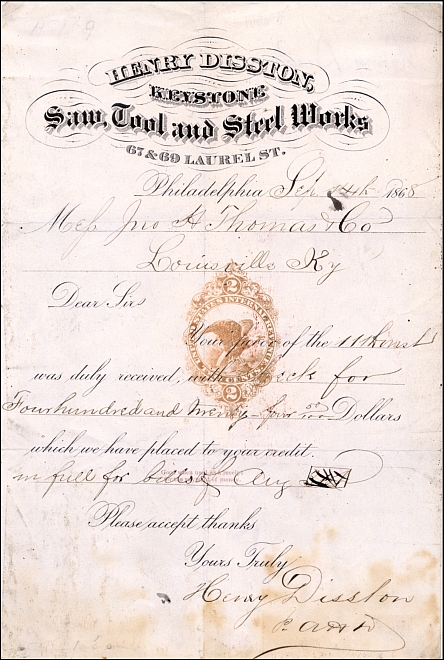 HENRY DISSTON,
KEYSTONE
Saw, Tool and Steel Works
67 & 69 LAUREL ST.
Philadelphia Sep 14th 1868
Mess Jno H Thomas & Co
Louisville Ky
Dear Sirs
Your favor of the 11th inst
was duly received, with check for
Four hundred and twenty-four Dollars
which we have placed to your credit.
in full for bills of Aug
Please accept thanks
Yours Truly
Henry Disston
2
UNITED STATES INTERNAL REVENUE
CENTS
2